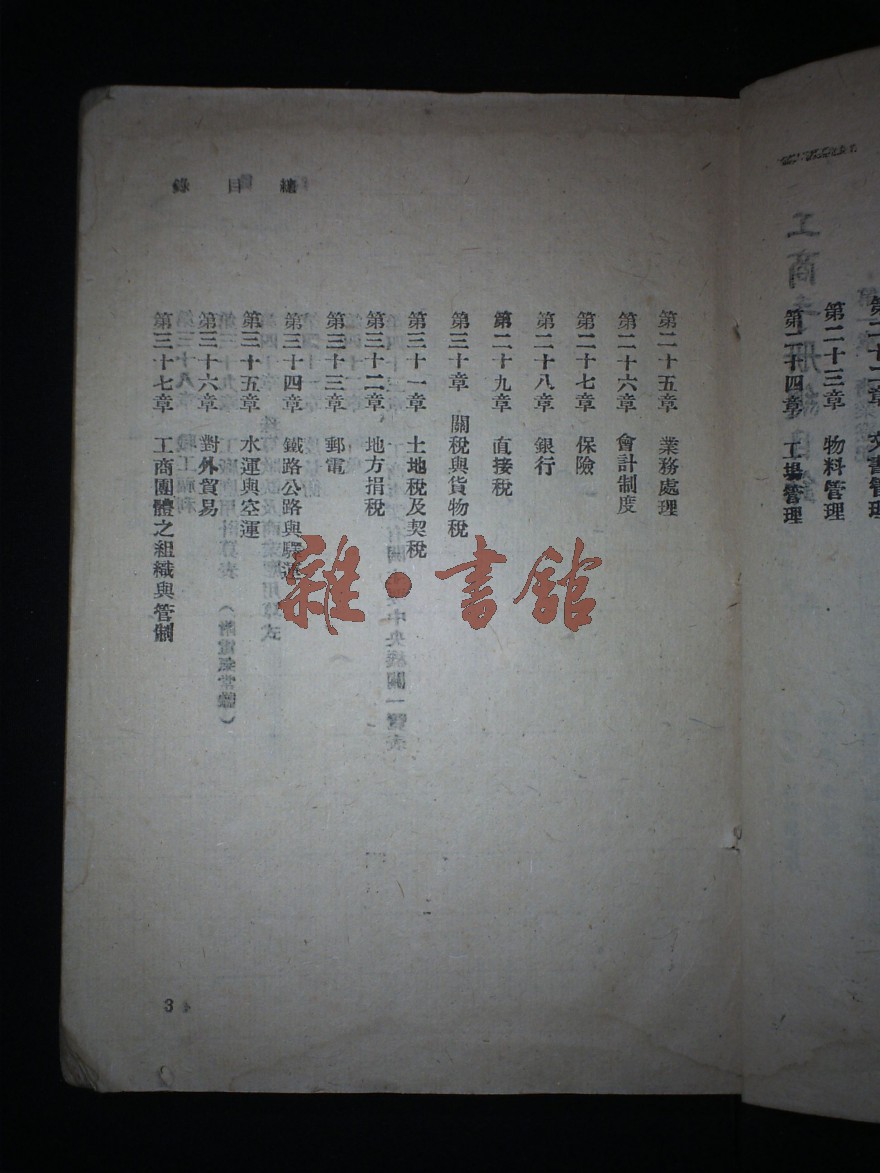 第二十二章　文書管理
第二十三章　物料管理
第二十四章　工場管理
總目錄
第二十五章　業務處理
第二十六章　會計制度
第二十七章　保險
第二十八章　銀行
第二十九章　直接稅
第三十章　關稅與貨物稅
第三十一章　土地稅及契稅
第三十二章　地方捐稅
第三十三章　郵電
第三十四章　鐵路公路與驛運
第三十五章　水運與空運
第三十六章　對外貿易
第三十七章　工商團體之組織與管制
3
雜·書館